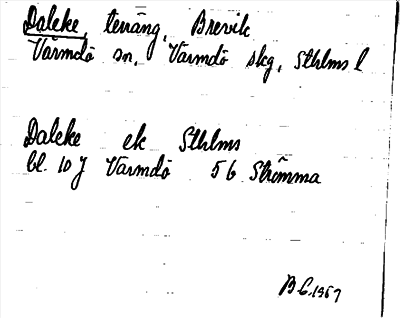 Daleke, teräng, Brevik
Värmdö sn, Värmdö skg, Sthlms l
Daleke ek Sthlms
bl. 10 J Värmdö 56 Strömma
B G. 1957